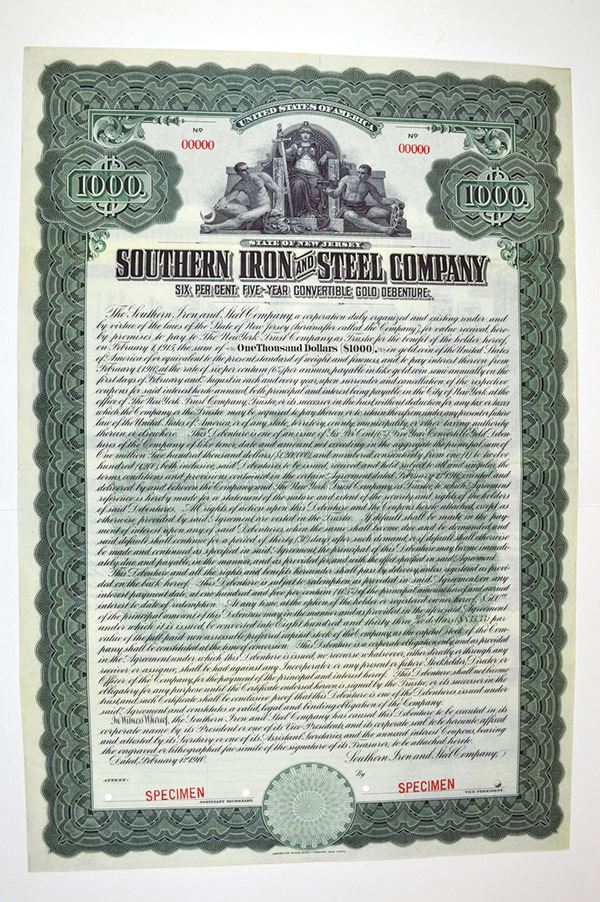 UNITED STATES OF AMERICA
No No
00000 00000
1000. 1000.
STATE OF NEW JERSEY
SOUTHERN IRON AND STEEL COMPANY
SIX PER CENT. FIVE-YEAR CONVERTIBLE GOLD DEBENTURE.
The Southern Iron and Steel Company, a corporation duly organized and existing under and
by virtue of the laws of the State of New Jersey (hereinafter called the Company), for value received, here-
by promises to pay to The New York Trust Company, as Trustee for the benefit of the holder hereof,
on February 1, 1915, the sum of One Thousand Dollars ($1000), in gold coin of the United States
of America of or equivalent to the present standard of weight and fineness, and to pay interest thereon from
February 1, 1910, at the rate of six per centum (6%) per annum, payable in like gold coin, semi-annually on the
first days of February and August in each and every year, upon surrender and cancellation of the respective
coupons for said interest hereto annexed, both principal and interest being payable in the City of New York at the
office of The New York Trust Company, Trustee, or its successor in the trust, without deduction for any tax or taxes
which the Company or the Trustee may be required to pay thereon or to retain therefrom under any present or future
law of the United States of America, or of any state, territory, county, municipality, or other taxing authority
therein or elsewhere. This Debenture is one of an issue of Six Per Cent. Five Year Convertible Gold Deben-
tures of the Company of like tenor, date and amount, not exceeding in the aggregate the principal sum of
One million Two hundred thousand dollars ($1,200,000), and numbered consecutively from one (1) to twelve
hundred (1200), both inclusive, said Debentures to be issued, received and held subject to all and singular the
terms, conditions and provisions contained in the certain Agreement dated February 1, 1910, executed and
delivered by and between the Company and the New York Trust Company, as Trustee, to which Agreement
reference is hereby made for a statement of the nature and extent of the security and rights of the holders
of said Debentures. All rights of action upon this Debenture and the Coupons hereto attached, except as
otherwise provided by said Agreement are vested in the Trustee. If default shall be made in the pay-
ment of interest upon any of said Debentures, when the same shall become due and be demanded, and
said default shall continue for a period of thirty (30) days after such demand, or if default shall otherwise
be made and continued as specified in said Agreement, the principal of this Debenture may become immedi-
ately due and payable, in the manner, and as provided for, and with the effect specified in said Agreement.
This Debenture and all the rights and benefits hereunder shall pass by delivery, unless registered as provid-
ed on the back hereof. This Debenture is subject to redemption, as provided in said Agreement, on any
interest payment date, at one hundred and five per centum (105%) of the principal amount hereof and accrued
interest to date of redemption. At any time, at the option of the holder or registered owner hereof,
of the principal amount of this Debenture may in the manner and as provided in the aforesaid Agreement
under which it is issued, be converted into Eight hundred and thirty three dollars par
value of the full-paid non-assessable preferred capital stock of the Company, as the capital stock of the Com-
pany shall be constituted at the time of conversion. This Debenture is a corporate obligation only, and as provided
in the Agreement under which this Debenture is issued, no recourse whatsoever, either directly or through any
receiver or assignee, shall be had against any Incorporator or any present or future Stockholder, Director or
Officer of the Company, for the payment of the principal and interest hereof. This Debenture shall not become
obligatory for any purpose until the Certificate endorsed hereon is signed by the Trustee, or its successor in the
trust, and such Certificate shall be conclusive proof that this Debenture is one of the Debentures issued under
said Agreement and constitutes a valid, legal and binding obligation of the Company.
In Witness Whereof, the Southern Iron and Steel Company has caused this Debenture to be executed in its
corporate name by its President or one of its Vice Presidents, and its corporate seal to be hereunto affixed
and attested by its Secretary or one of its Assistant Secretaries, and the annexed interest Coupons, bearing
the engraved or lithographed fac-simile of the signature of its Treasurer, to be attached hereto.
Dated, February 1st 1910. Southern Iron and Steel Company,
ATTEST: By
SPECIMEN SPECIMEN
ASSISTANT SECRETARY. VICE PRESIDENT.
AMERICAN BANK NOTE COMPANY, NEW YORK.